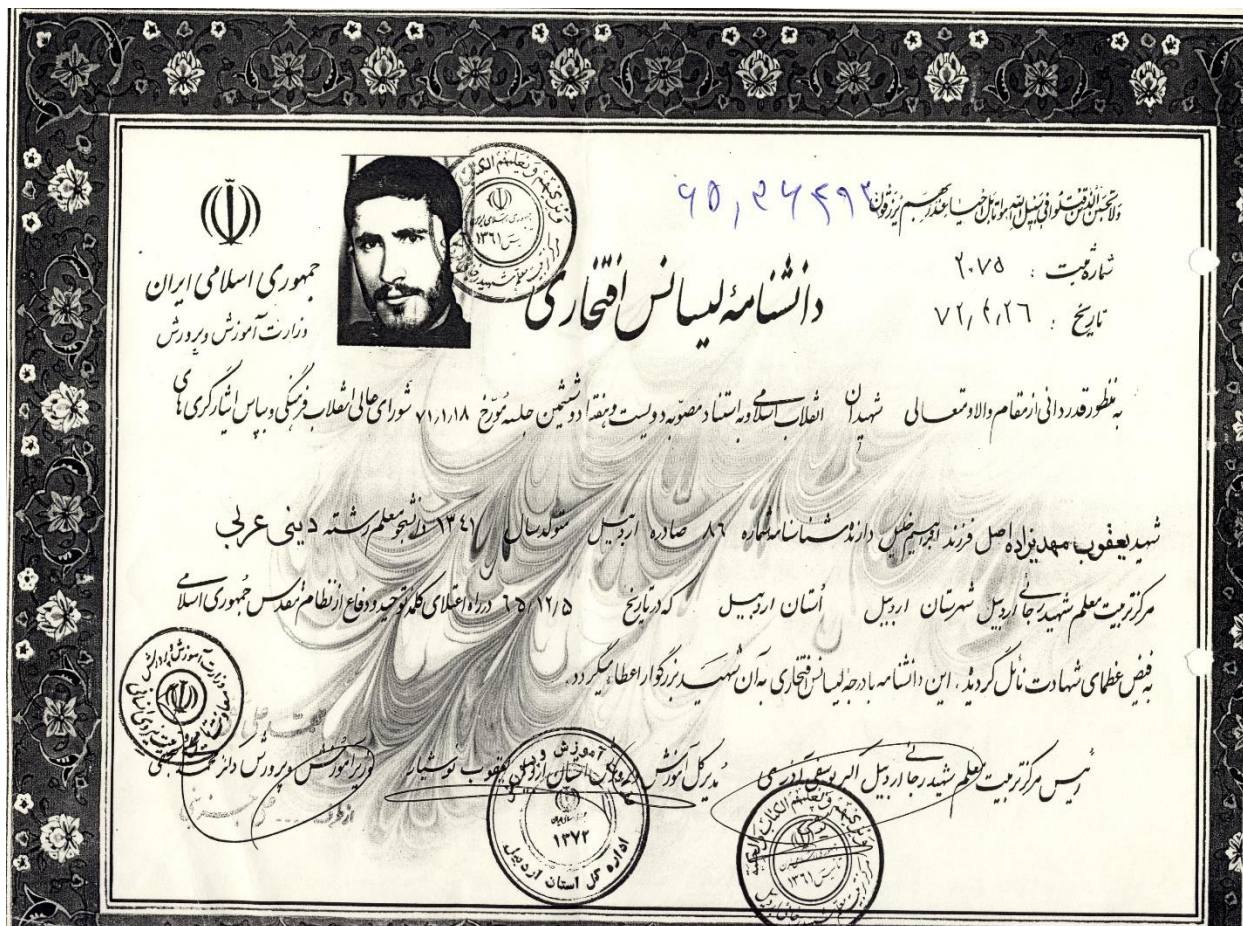 ولا تحسبن الذین قتلوا فی سبیل الله امواتا بل احیاء عند ربهم یرزقون
شماره ثبت : ۲۰۷۵
تاریخ : ۷۲٫۴٫۲۶
جمهوری اسلامی ایران
وزارت آموزش و پرورش
دانشنامهٔ لیسانس افتخاری
به منظور قدردانی از مقام والا و متعالی شهیدان انقلاب اسلامی و به استناد مصوبه دویست و هفتاد و ششمین جلسه مورخ ۷۱٫۱٫۱۸ شورای عالی انقلاب فرهنگی و بپاس ایثارگری های
شهید یعقوب مهدیزاده اصل فرزند ابراهیم خلیل دارنده شناسنامه شماره ۸۶ صادره اردبیل متولد سال ۱۳۴۱ دانشجو معلم رشته دینی عربی
مرکز تربیت معلم شهید رجائی اردبیل شهرستان اردبیل اُستان اردبیل که در تاریخ ۶۵/۱۲/۵ در راه اعتلای کلمه توحید و دفاع از نظام مقدس جمهوری اسلامی
به فیض عظمای شهادت نائل گردید . این دانشنامه با درجه لیسانس افتخاری به آن شهید بزرگوار اعطاء میگردد .
رئیس مرکز تربیت معلم شهید رجائی اردبیل اکبر یوسفی آدرسی
مدیر کل آموزش و پرورش استان اردبیل یعقوب نوشیار
وزیر آموزش و پرورش دکتر محمد علی نجفی
از طرف
۱۳۶۱
۱۳۷۲
اداره کل استان اردبیل
۱۳۶۱